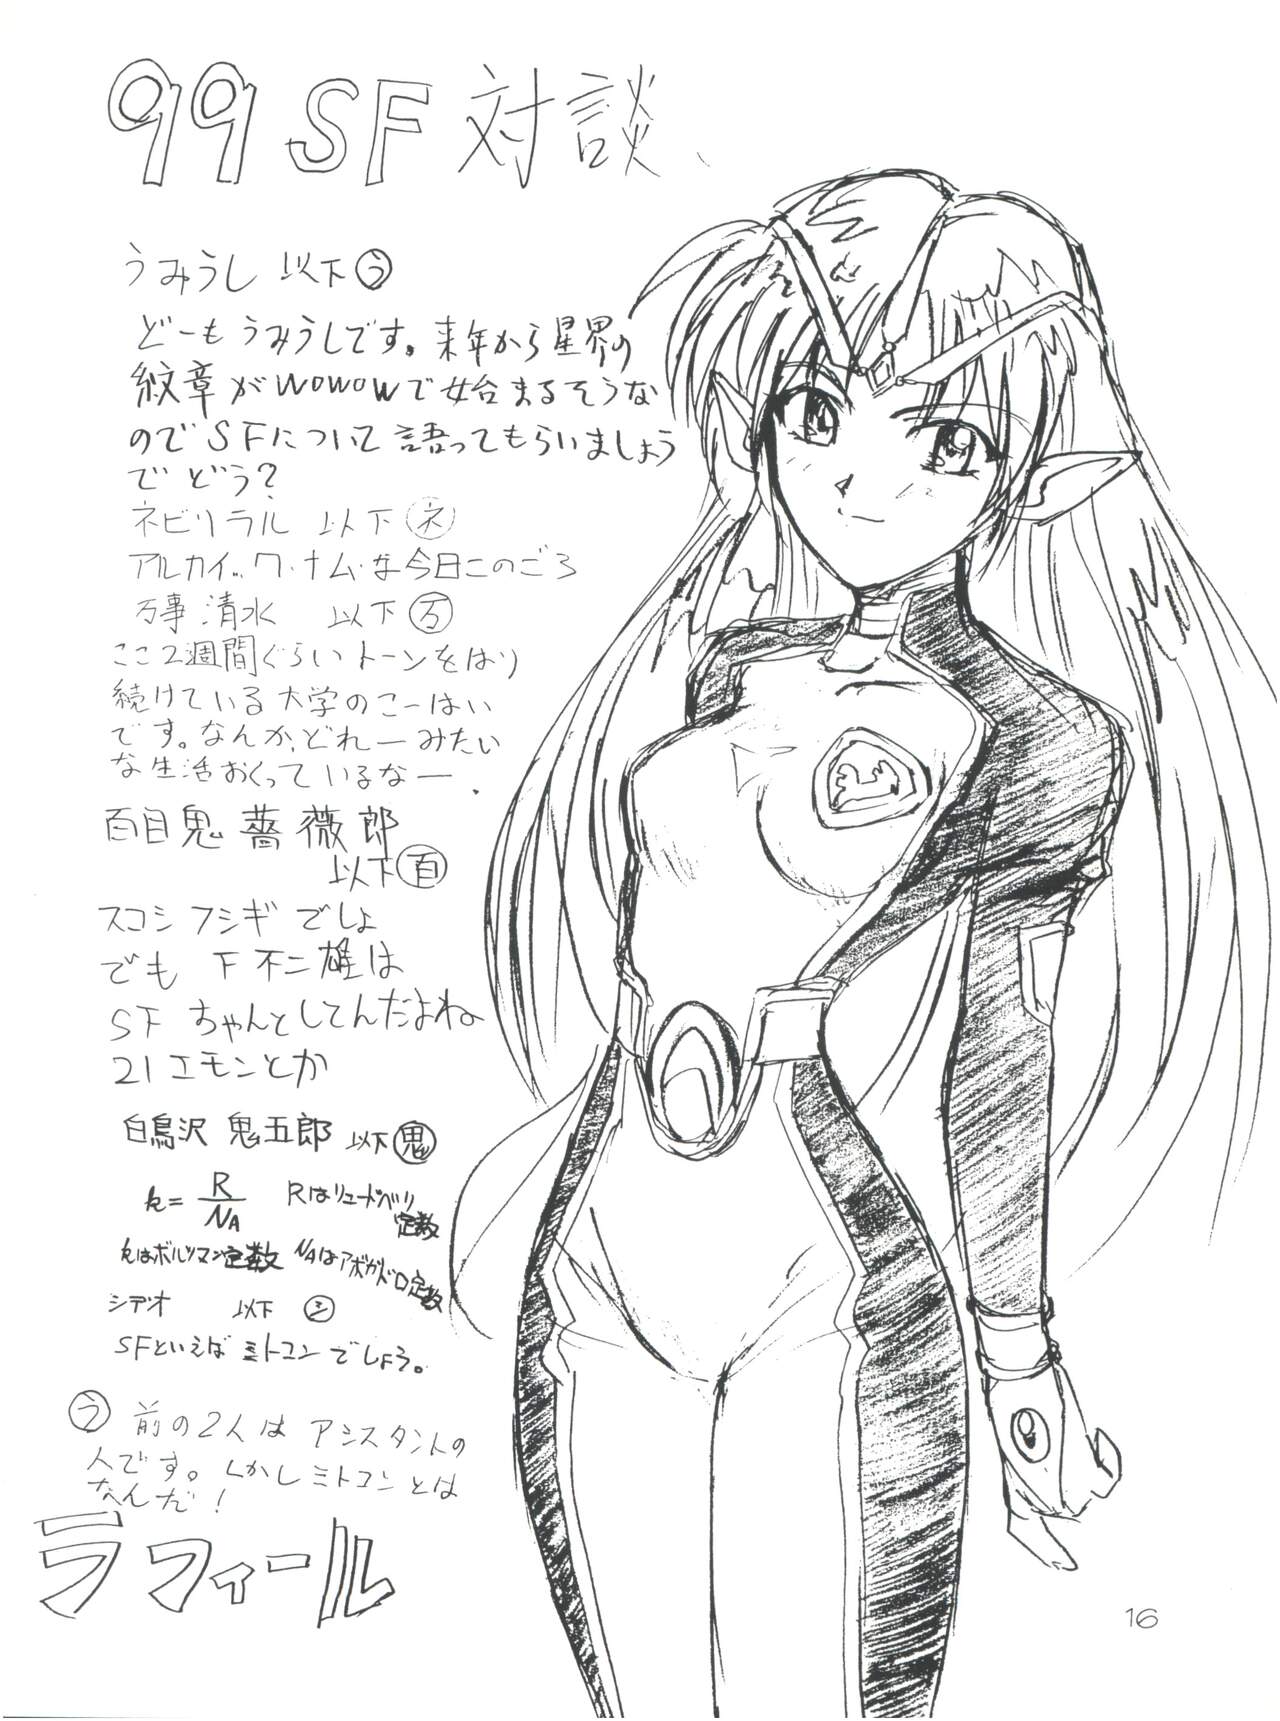 99 SF 対談、
うみうし 以下う
どーもうみうしです。来年から星界の
紋章がWOWOWで始まるそうな
のでSFについて語ってもらいましょう
でどう?
ネビリラル 以下ネ
アルカイック・ナム・な今日このごろ
万事清水 以下万
ここ2週間ぐらいトーンをはり
続けている大学のこーはい
です。なんか、どれーみたい
な生活おくっているなー.
百目鬼薔薇郎
以下百
スコシフシギでしょ
でも 下不二雄は
SFちゃんとしてんだよね
21エモンとか
白鳥沢 鬼五郎 以下鬼
k=R/NA Rはリュードベリ
定数
kはボルツマン定数 NAはアボガドロ定数
シデオ 以下シ
SFといえばミトコンでしょう。
う 前の2人はアシスタントの
人です。しかしミトコンとは
なんだ!
ラフィール
16